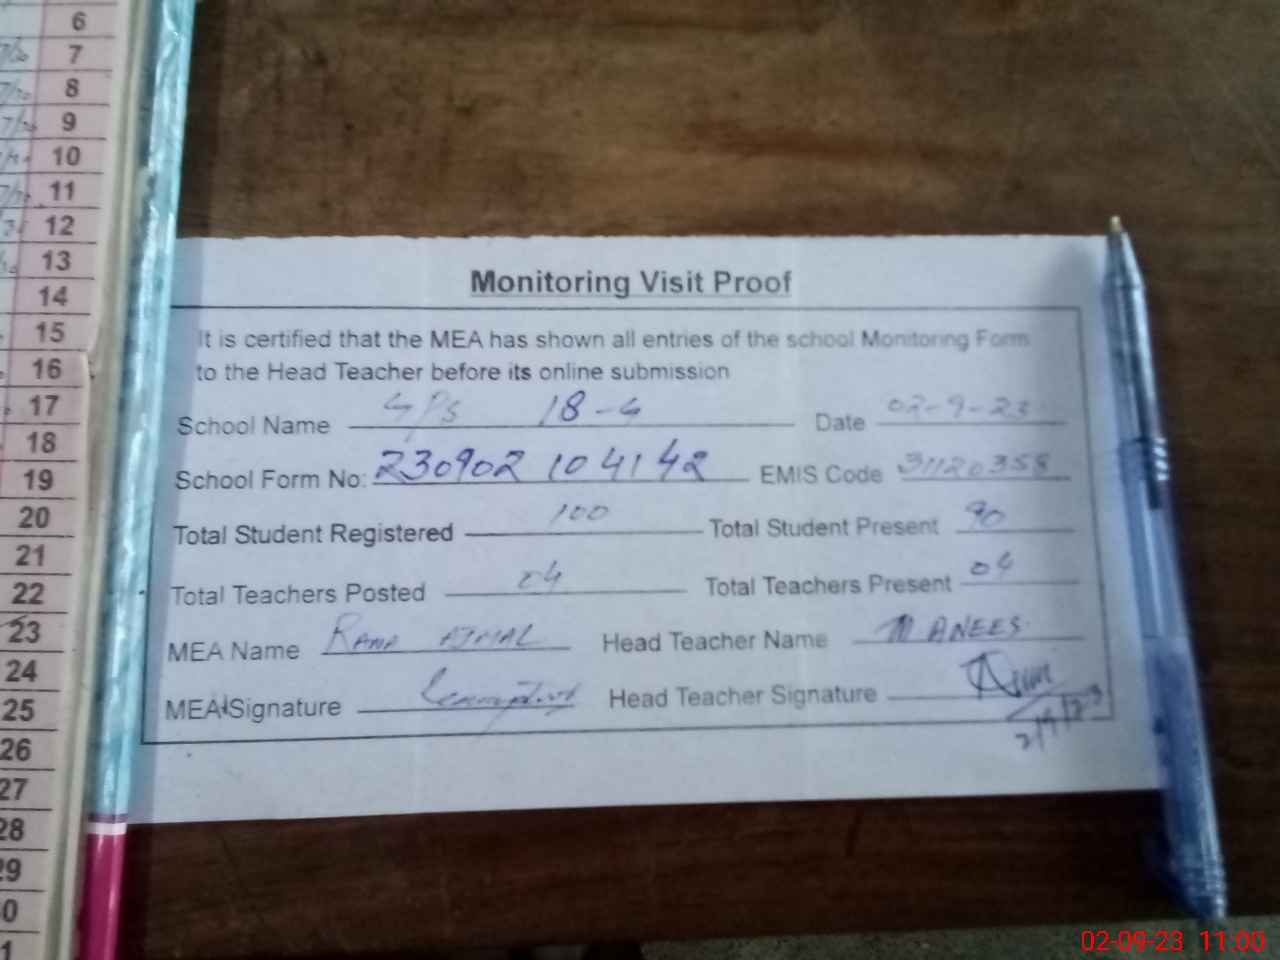 6
7
8
9
10
11
12
13
14
15
16
17
18
19
20
21
22
23
24
25
26
27
28
29
0
1
Monitoring Visit Proof
It is certified that the MEA has shown all entries of the school Monitoring Form
to the Head Teacher before its online submission
School Name GPS 18-G Date 02-9-23
School Form No: 230902104142 EMIS Code 31120358
Total Student Registered 100 Total Student Present 90
Total Teachers Posted 04 Total Teachers Present 04
MEA Name RANA AJMAL Head Teacher Name M ANEES
MEA Signature Head Teacher Signature
2/9/23
02-09-23 11:00